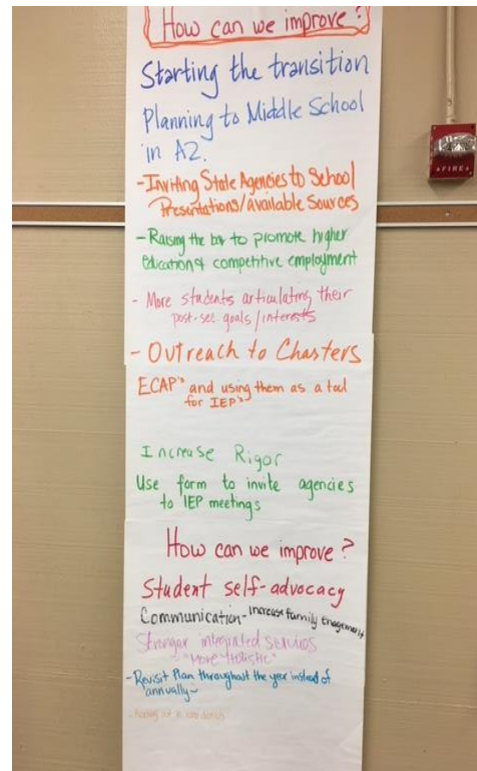 How can we improve?
Starting the transition
Planning to Middle School
in AZ.
-Inviting State Agencies to School
Presentations/available Sources
-Raising the bar to promote higher
education & competitive employment
- More students articulating their
post-sec goals/interests
- Outreach to Charters
ECAP's and using them as a tool
for IEP's
Increase Rigor
Use form to invite agencies
to IEP meetings
How can we improve?
Student self-advocacy
Communication - Increase Family Engagement
Stronger integrated services
"More Holistic"
-Revisit Plan throughout the year instead of
annually-
FIRE